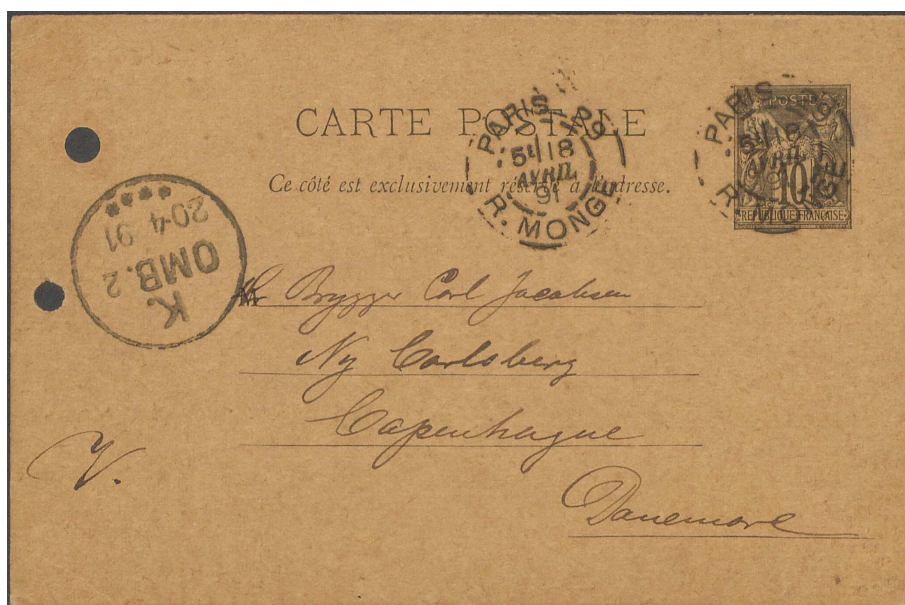 CARTE POSTALE
Ce côté est exclusivement réservé à l'adresse.
PARIS
5E/18
AVRIL
91
R. MONGE
PARIS
5E/18
AVRIL
R. MONGE
POSTES
10
REPUBLIQUE FRANÇAISE
K.
OMB. 2
20-4 91
Hr Brygger Carl Jacobsen
Ny Carlsberg
Copenhague
Danemark
V.